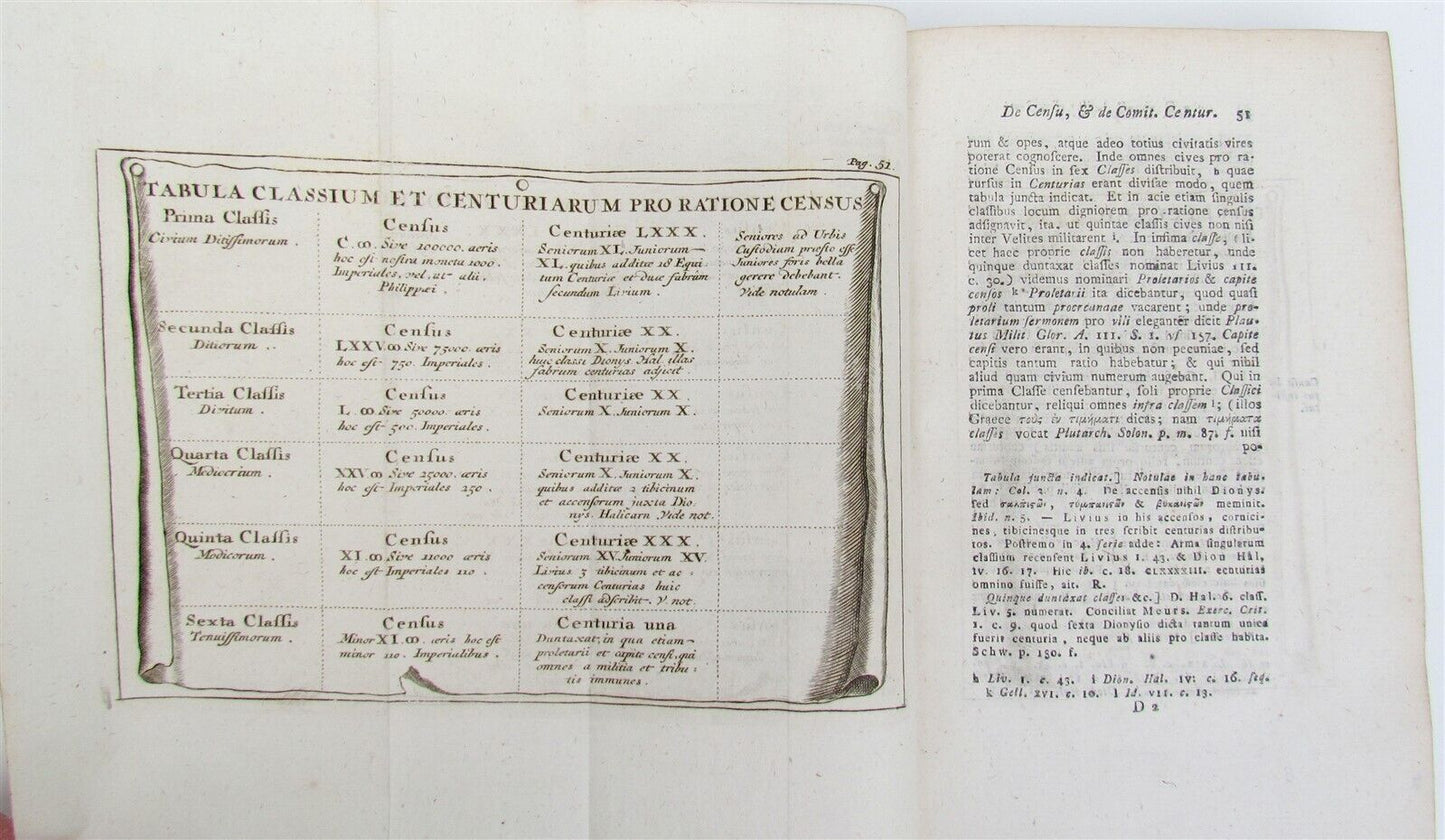 Pag. 51.
TABULA CLASSIUM ET CENTURIARUM PRO RATIONE CENSUS
Prima Claſſis
Civium Ditiſſimorum.
Cenſus
C.ꝏ. Sive 100000. æris
hoc eſt noſtra moneta 1000.
Imperiales, vel, ut alii,
Philippæi.
Centuriæ LXXX.
Seniorum XL. Juniorum
XL. quibus additæ 18 Equi
tum Centuriæ et duæ fabrûm
ſecundum Livium.
Seniores ad Urbis
Cuſtodiam præſto eſſe
Juniores foris bella
gerere debebant.
Vide notulam.
Secunda Claſſis
Ditiorum.
Cenſus
LXXV.ꝏ Sive 75000. æris
hoc eſt 750. Imperiales.
Centuriæ XX.
Seniorum X. Juniorum X.
huic claſſi Dionys. Hal. illas
fabrum centurias adjicit.
Tertia Claſſis
Divitum.
Cenſus
L.ꝏ Sive 50000. æris
hoc eſt 500. Imperiales.
Centuriæ XX.
Seniorum X. Juniorum X.
Quarta Claſſis
Mediocrium.
Cenſus
XXV.ꝏ Sive 25000. æris
hoc eſt Imperiales 250.
Centuriæ XX.
Seniorum X. Juniorum X.
quibus additæ 2 tibicinum
et accenſorum juxta Dio
nys. Halicarn Vide not.
Quinta Claſſis
Modicorum.
Cenſus
XI.ꝏ Sive 11000 æris
hoc eſt Imperiales 110.
Centuriæ XXX.
Seniorum XV. Juniorum XV.
Livius 3 tibicinum et ac
cenſorum Centurias huic
claſſi adſcribit. V. not.
Sexta Claſſis
Tenuiſſimorum.
Cenſus
Minor XI.ꝏ. æris hoc eſt
minor 110. Imperialibus.
Centuria una
Duntaxat, in qua etiam
proletarii et capite cenſi, qui
omnes a militia et tribu
tis immunes.
De Cenſu, & de Comit. Centur. 51
rum & opes, atque adeo totius civitatis vires
poterat cognoſcere. Inde omnes cives pro ra-
tione Cenſus in ſex Claſſes diſtribuit, h quae
rurſus in Centurias erant diviſae modo, quem
tabula juncta indicat. Et in acie etiam ſingulis
claſſibus locum digniorem pro ratione cenſus
adſignavit, ita, ut quintae claſſis cives non niſi
inter Velites militarent i. In infima claſſe, (li-
cet haec proprie claſſis non haberetur, unde
quinque duntaxat claſſes nominat Livius III.
c. 30.) videmus nominari Proletarios & capite
cenſos k. Proletarii ita dicebantur, quod quaſi
proli tantum procreandae vacarent; unde pro-
letarium ſermonem pro vili eleganter dicit Plau-
tus Milit Glor. A. III. S. 1. vſ 157. Capite
cenſi vero erant, in quibus non pecuniae, ſed
capitis tantum ratio habebatur; & qui nihil
aliud quam civium numerum augebant. Qui in
prima Claſſe cenſebantur, ſoli proprie Claſſici
dicebantur, reliqui omnes infra claſſem l; (illos
Graece τοὺς ἐν τιμήματι dicas; nam τιμήματα
claſſes vocat Plutarch. Solon. p. m. 87. f. niſi
po-
Tabula juncta indicat.] Notulae in hanc tabu-
lam: Col. 2 n. 4. De accenſis nihil Dionys.
ſed σαλπιςῶν, τυμπανιςῶν & βυκανιςῶν meminit.
Ibid. n. 5. — Livius in his accenſos, cornici-
nes, tibicinesque in tres ſcribit centurias diſtribu-
tos. Poſtremo in 4. ſerie adde: Arma ſingularum
claſſium recenſent Livius I. 43. & Dion Hal,
IV. 16. 17. Hic ib. c. 18. CLXXXXIII. centurias
omnino fuiſſe, ait. R.
Quinque duntaxat claſſes &c.] D. Hal. 6. claſſ.
Liv. 5. numerat. Conciliat Meurs. Exerc. Crit.
I. c. 9. quod ſexta Dionyſio dicta tantum unica
fuerit centuria, neque ab aliis pro claſſe habita.
Schw. p. 130. f.
h Liv. 1. c. 43. i Dion. Hal. IV. c. 16. ſeq.
k Gell. XVI. c. 10. l Id. VII. c. 13.
D 2